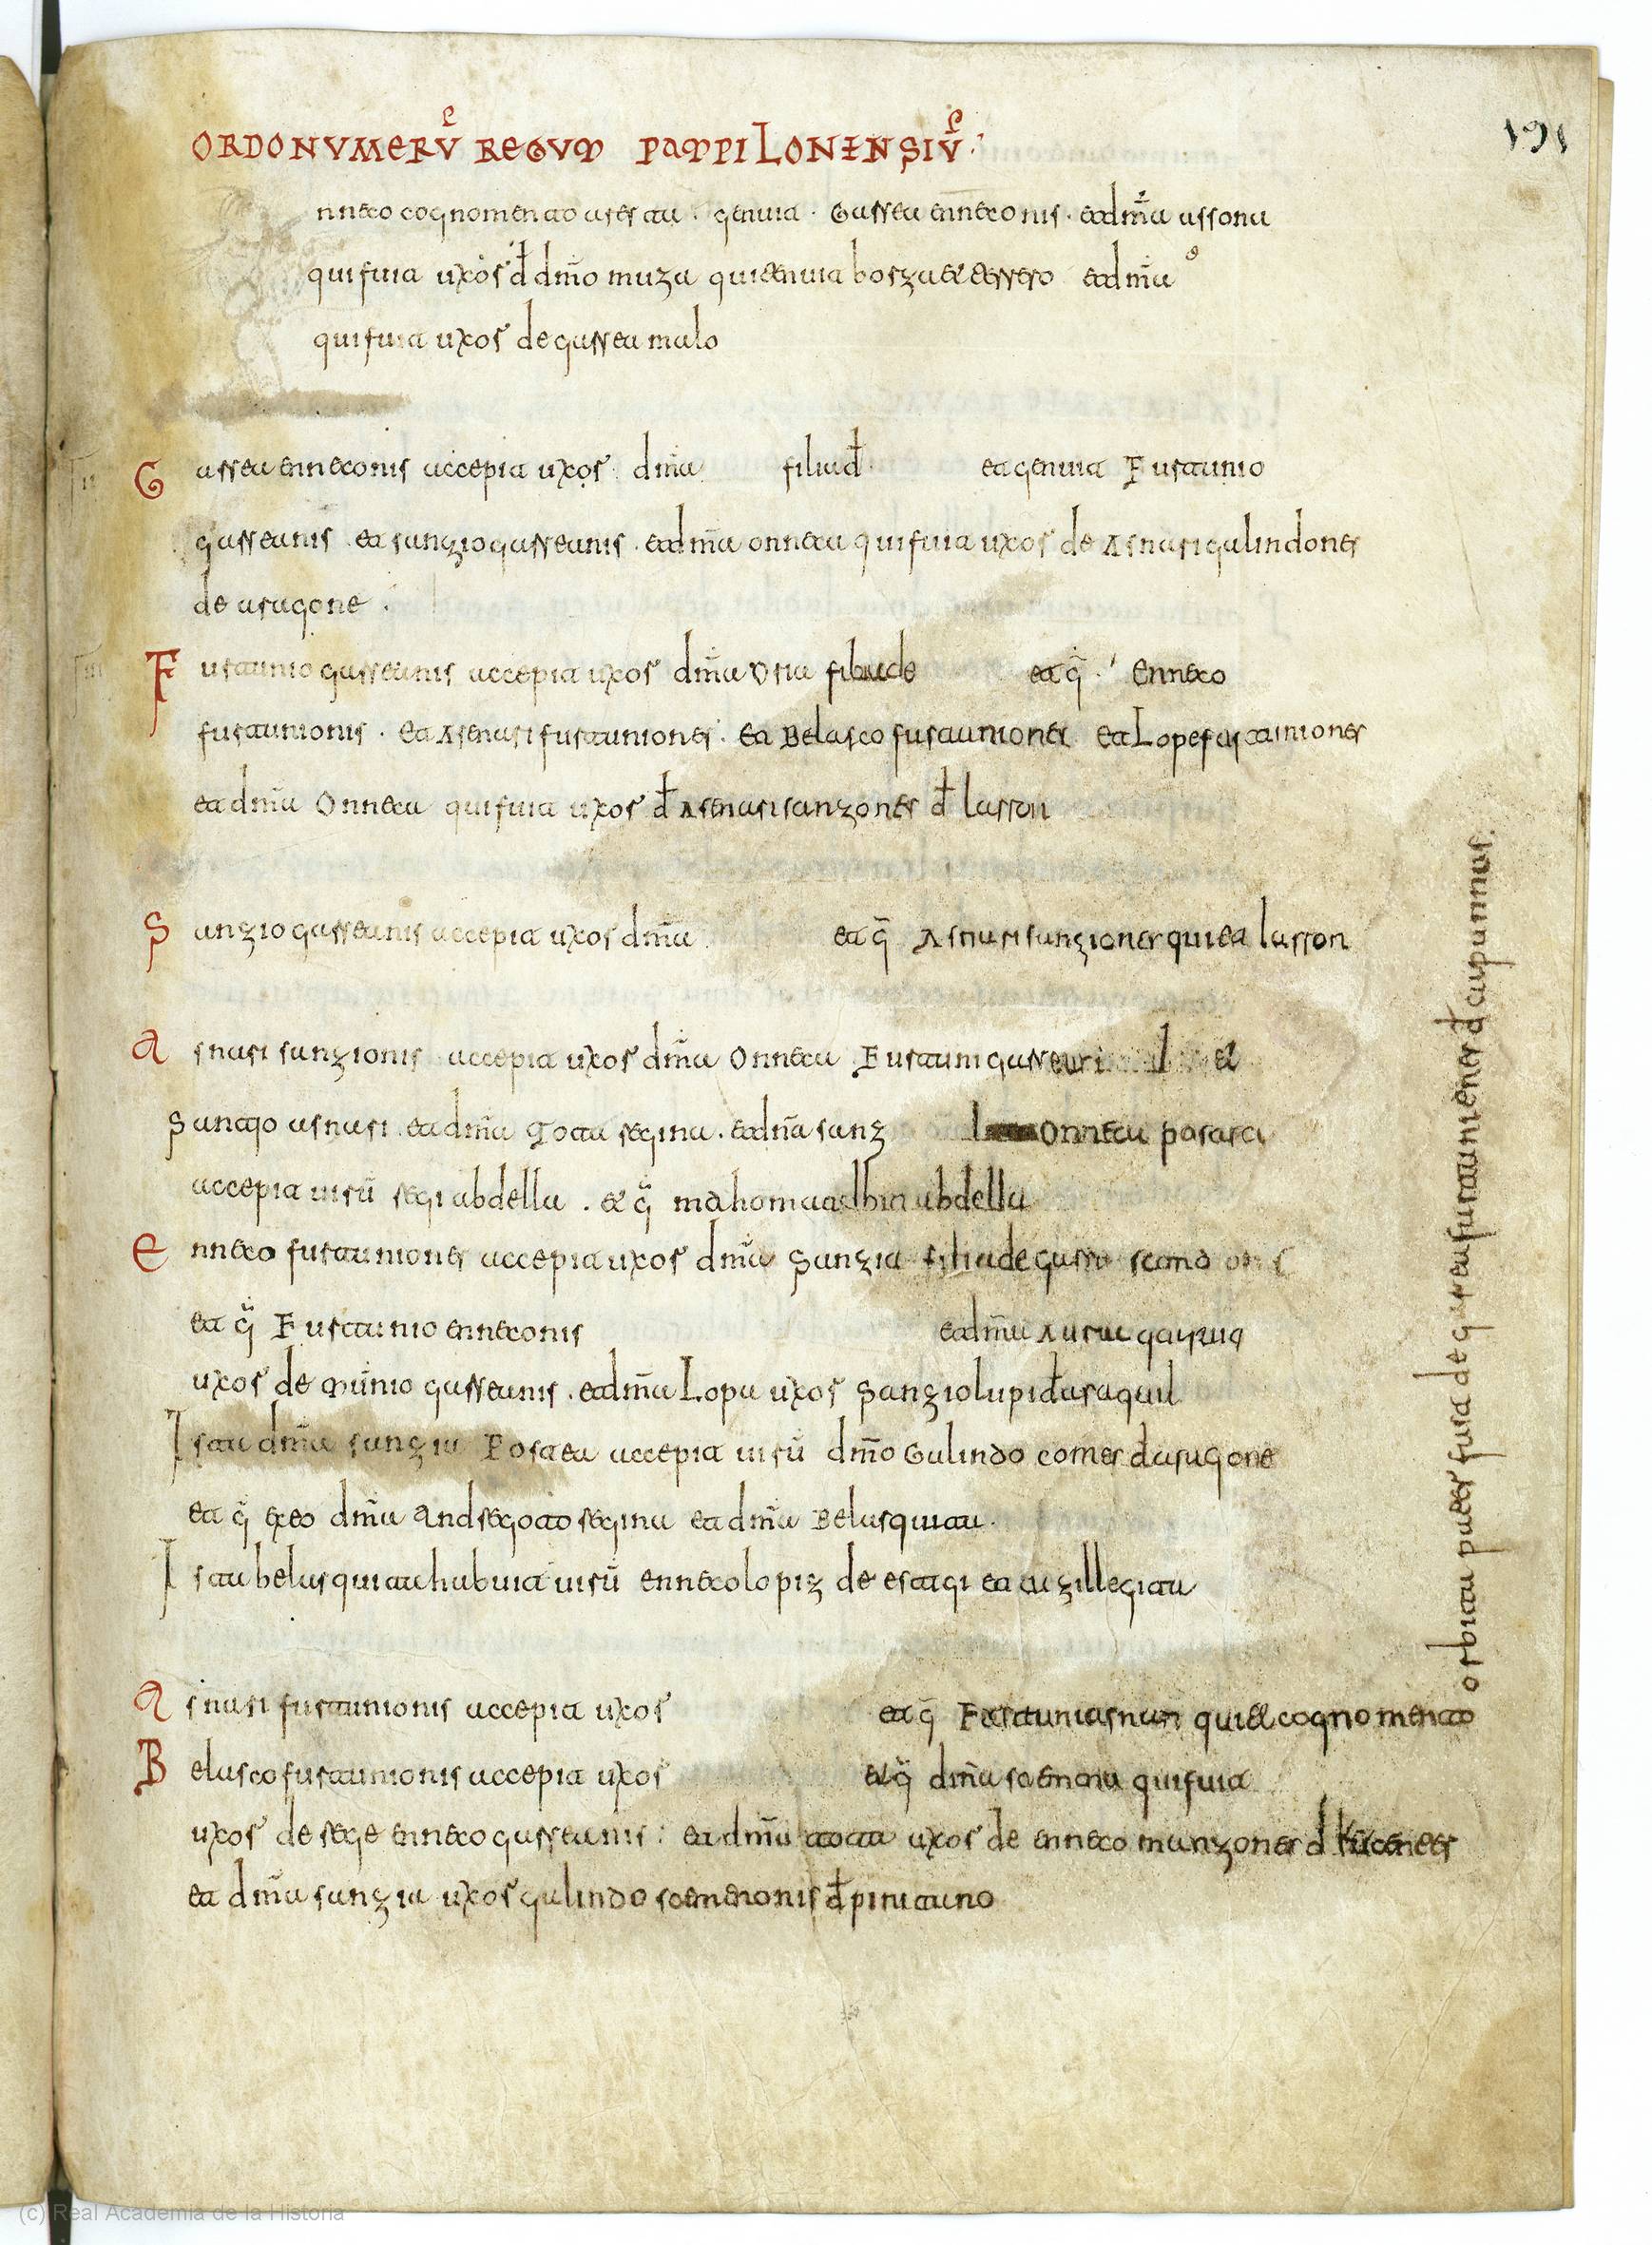 191
ORDO NVMERV̄ REGVM PAMPILONENSIV̄
nneco cognomento aresta . genuit . Garsea enneconis . et dm̄a assona
qui fuit uxor đ dm̄o muza qui tenuit borza et terrero et dm̄a
qui fuit uxor de garsea malo
Garsea enneconis accepit uxor dm̄a filia đ et genuit Furtunio
garseanis . et sanzio garseanis . et dm̄a onneca qui fuit uxor de Asnari galindones
de aragone .
Furtunio garseanis accepit uxor dm̄a Oria filia de et ḡ . Enneco
furtunionis . et Asenari furtuniones . et Belasco furtuniones et Lope furtuniones
et dm̄a Onneca qui fuit uxor đ Asenari sanzones đ larron
Sanzio garseanis accepit uxor dm̄a et ḡ Asnari sanziones qui et larron
Asnari sanzionis accepit uxor dm̄a Onneca Furtuni garseani et
Sanctio asnari . et dm̄a Tota regina . et dm̄a sanz Onneca postea
accepit uirū regi abdella . et ḡ mahomat ibn abdella
Enneco furtuniones accepit uxor dm̄a Sanzia filia de garsi
et ḡ Furtunio enneconis et dm̄a Auria
uxor de Munio garseanis . et dm̄a Lopa uxor Sanzio lupi đ araquil
Ista dm̄a sanzia Postea accepit uirū dm̄o Galindo comes đ aragone
et ḡ ex eo dm̄a Andregoto regina et dm̄a Belasquita .
Ista belasquita habuit uirū enneco lopiz de estigi et cizillegita
Asnari furtunionis accepit uxor et ḡ Furtuni asnari qui et cognomento
orbita puer fuit de furtuniones
Belasco furtunionis accepit uxor et ḡ dm̄a scemena qui fuit
uxor de rege enneco garseanis . et dm̄a tota uxor de enneco manzones đ
et dm̄a sanzia uxor galindo scemenonis đ pinitano
(c) Real Academia de la Historia